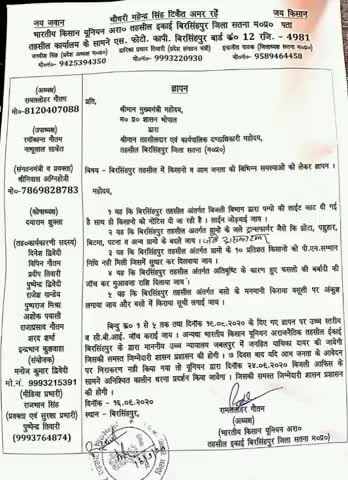 चौधरी महेन्द्र सिंह टिकैत अमर रहें
जय जवान
जय किसान
भारतीय किसान यूनियन अरा० तहसील इकाई बिरसिंहपुर जिला सतना म०प्र० पता
तहसील कार्यालय के सामने एस. फोटो. कापी. बिरसिंहपुर वार्ड कं० 12 रजि. - 4981
जगदीश सिंह (प्रदेश अध्यक्ष म०प्र०)
मो०नं० 9425394350
द्वारिका प्रसाद तिवारी (प्रदेश संगठन मंत्री)
मो०नं० - 9993220930
इन्द्रजीत पाठक (जिलाध्यक्ष सतना म०प्र०)
मो०नं० - 9589464458
(अध्यक्ष)
रामललोहर गौतम
मो०-8120407088
(उपाध्यक्ष)
रमाकान्त गौतम
नत्थूलाल साकेत
(संगठनमंत्री व प्रवक्ता)
श्रीनिवास अग्निहोत्री
मो०-7869828783
(कोषाध्यक्ष)
दयाराम शुक्ला
(तह०कार्यकारणी सदस्य)
दिनेश द्विवेदी
विपिन गौतम
प्रदीप तिवारी
पुष्पेन्द्र द्विवेदी
राजेश पाण्डेय
पुष्पराज मिश्रा
अशोक पयासी
राजाप्रसाद गौतम
शरद शर्मा
इन्द्रभान कुशवाहा
(संयोजक)
मनोज कुमार द्विवेदी
मो.नं. 9993215391
(मीडिया प्रभारी)
राजभान सिंह
(प्रवक्ता एवं सुरक्षा प्रभारी)
पुष्पेन्द्र तिवारी
(9993764874)
ज्ञापन
प्रति,
श्रीमान मुख्यमंत्री महोदय,
म० प्र० शासन भोपाल
द्वारा
श्रीमान तहसीलदार एवं कार्यपालिक दण्डाधिकारी महोदय,
तहसील बिरसिंहपुर जिला सतना (म०प्र०)
विषय - बिरसिंहपुर तहसील में किसानो व आम जनता की बिभिन्न समस्याओ को लेकर ज्ञापन।
महोदय,
1 यह कि बिरसिंहपुर तहसील अंतर्गत बिजली बिभाग द्वारा कि पम्पो की लाईट काट दी गई
है साथ ही किसानो को नोटिस दी जा रही है। लाईन जोड़वाई जाय।
2 यह कि बिरसिंहपुर तहसील अंतर्गत ग्रामो के जले ट्रान्सफार्मर जैसे कि झोटा, पडुहार,
बिटमा, पटना व अन्य ग्रामो के बदले जाय।
3 यह कि बिरसिंहपुर तहसील अंतर्गत ग्रामो के 10 प्रतिशत किसानो को पी.एम.सम्मान
निधि नही मिली जिसमे सुधार कर दिलवाया जाय।
4 यह कि बिरसिंहपुर तहसील अंतर्गत अतिवृष्टि के कारण हुए फसलो की बर्बादी की
जाँच कर मुआवजा राशि दिलाया जाय।
5 यह कि बिरसिंहपुर तहसील अंतर्गत बसो के मनमानी किराया वसूली पर अंकुश
लगाया जाय और बसो में किराया सूची लगाई जाय।
बिन्दु क्र० 1 से 5 तक तथा दिनांक 16.09.2020 के दिए गए ज्ञापन पर उच्च स्तरीय
व सी.बी.आई. जाँच कराई जाय। अन्यथा भारतीय किसान यूनियन अराजनैतिक तहसील ईकाई
बिरसिंहपुर के द्वारा माननीय उच्च न्यायालय जबलपुर में जनहित याचिका दायर की जावेगी
जिसकी समस्त जिम्मेदारी शासन प्रशासन की होगी। 7 दिवस बाद यदि आम जनता के आवेदन
पर निराकरण नही किया गया तो यूनियन द्वारा दिनांक 24.09.2020 बिजली आफिस के
सामने अनिश्चित कालीन धरना प्रदर्शन किया जावेगा। जिसकी समस्त जिम्मेदारी शासन प्रशासन
की होगी।
दिनांक - 16.09.2020
स्थान - बिरसिंहपुर,
रामललोहर गौतम
(अध्यक्ष)
(भारतीय किसान यूनियन अरा०
तहसील इकाई बिरसिंहपुर जिला सतना म०प्र०)